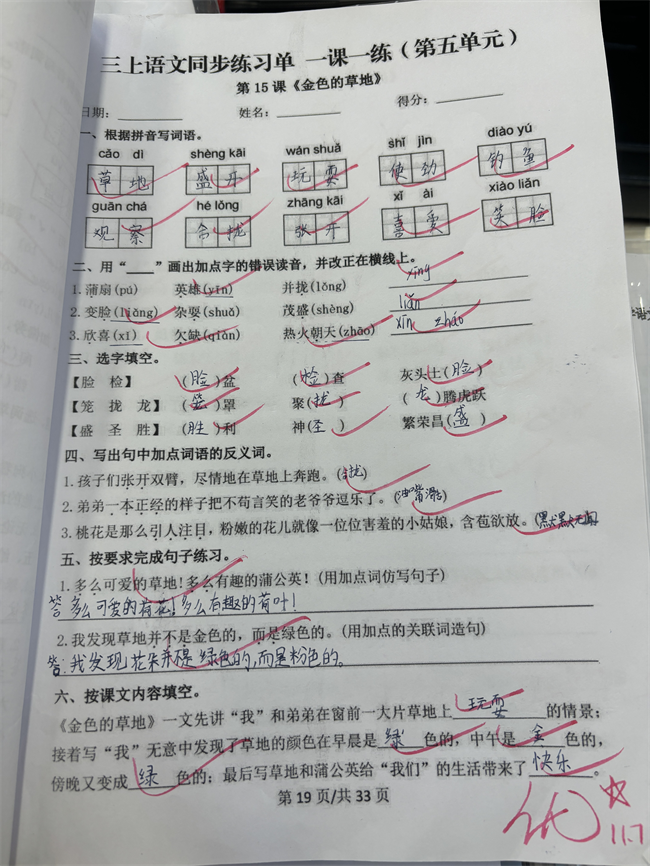 三上语文同步练习单 一课一练（第五单元）
第 15 课《金色的草地》
日期：________ 姓名：________ 得分：________
一、根据拼音写词语。
cǎo dì shèng kāi wán shuǎ shǐ jìn diào yú
草地 盛开 玩耍 使劲 钓鱼
guān chá hé lǒng zhāng kāi xǐ ài xiào liǎn
观察 合拢 张开 喜爱 笑脸
二、用“____”画出加点字的错误读音，并改正在横线上。
1.蒲扇(pú) 英雄(yīn) 并拢(lǒng) xíng
2.变脸(liǎng) 杂耍(shuǎ) 茂盛(shèng) liǎn
3.欣喜(xī) 欠缺(qiàn) 热火朝天(zhāo) xīn zháo
三、选字填空。
【脸 检】 (脸)盆 (检)查 灰头土(脸)
【笼 拢 龙】 (笼)罩 聚(拢) (龙)腾虎跃
【盛 圣 胜】 (胜)利 神(圣) 繁荣昌(盛)
四、写出句中加点词语的反义词。
1.孩子们张开双臂，尽情地在草地上奔跑。(拢)
2.弟弟一本正经的样子把不苟言笑的老爷爷逗乐了。(油嘴滑舌)
3.桃花是那么引人注目，粉嫩的花儿就像一位位害羞的小姑娘，含苞欲放。(默默无闻
五、按要求完成句子练习。
1.多么可爱的草地！多么有趣的蒲公英！(用加点词仿写句子)
答：多么可爱的荷花！多么有趣的荷叶！
2.我发现草地并不是金色的，而是绿色的。(用加点的关联词造句)
答：我发现花朵并不是绿色的，而是粉色的。
六、按课文内容填空。
《金色的草地》一文先讲“我”和弟弟在窗前一大片草地上玩耍的情景；
接着写“我”无意中发现了草地的颜色在早晨是绿色的，中午是金色的，
傍晚又变成绿色的；最后写草地和蒲公英给“我们”的生活带来了快乐。
第 19 页/共 33 页
优
11.7